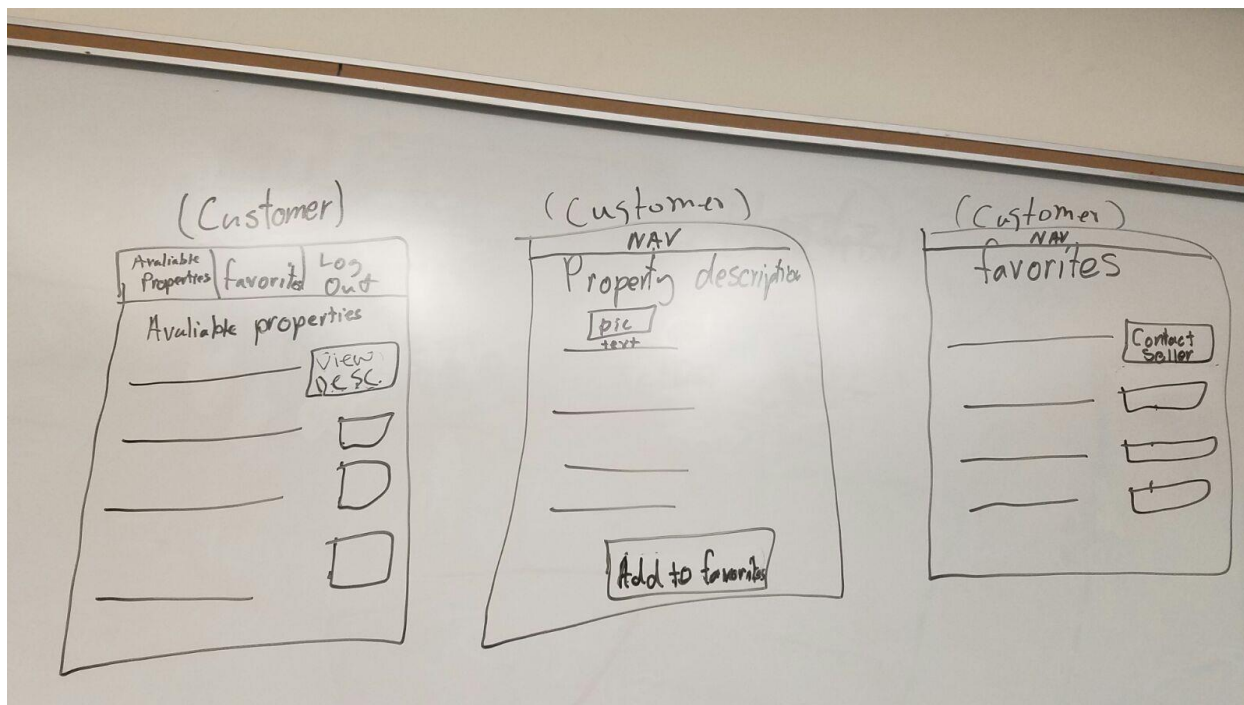 (Customer)
Avaliable
Properties
favorites
Log
Out
Avaliable properties
View
DESC.
(Customer)
NAV
Property description
pic
text
Add to favorites
(Customer)
NAV
favorites
Contact
Seller